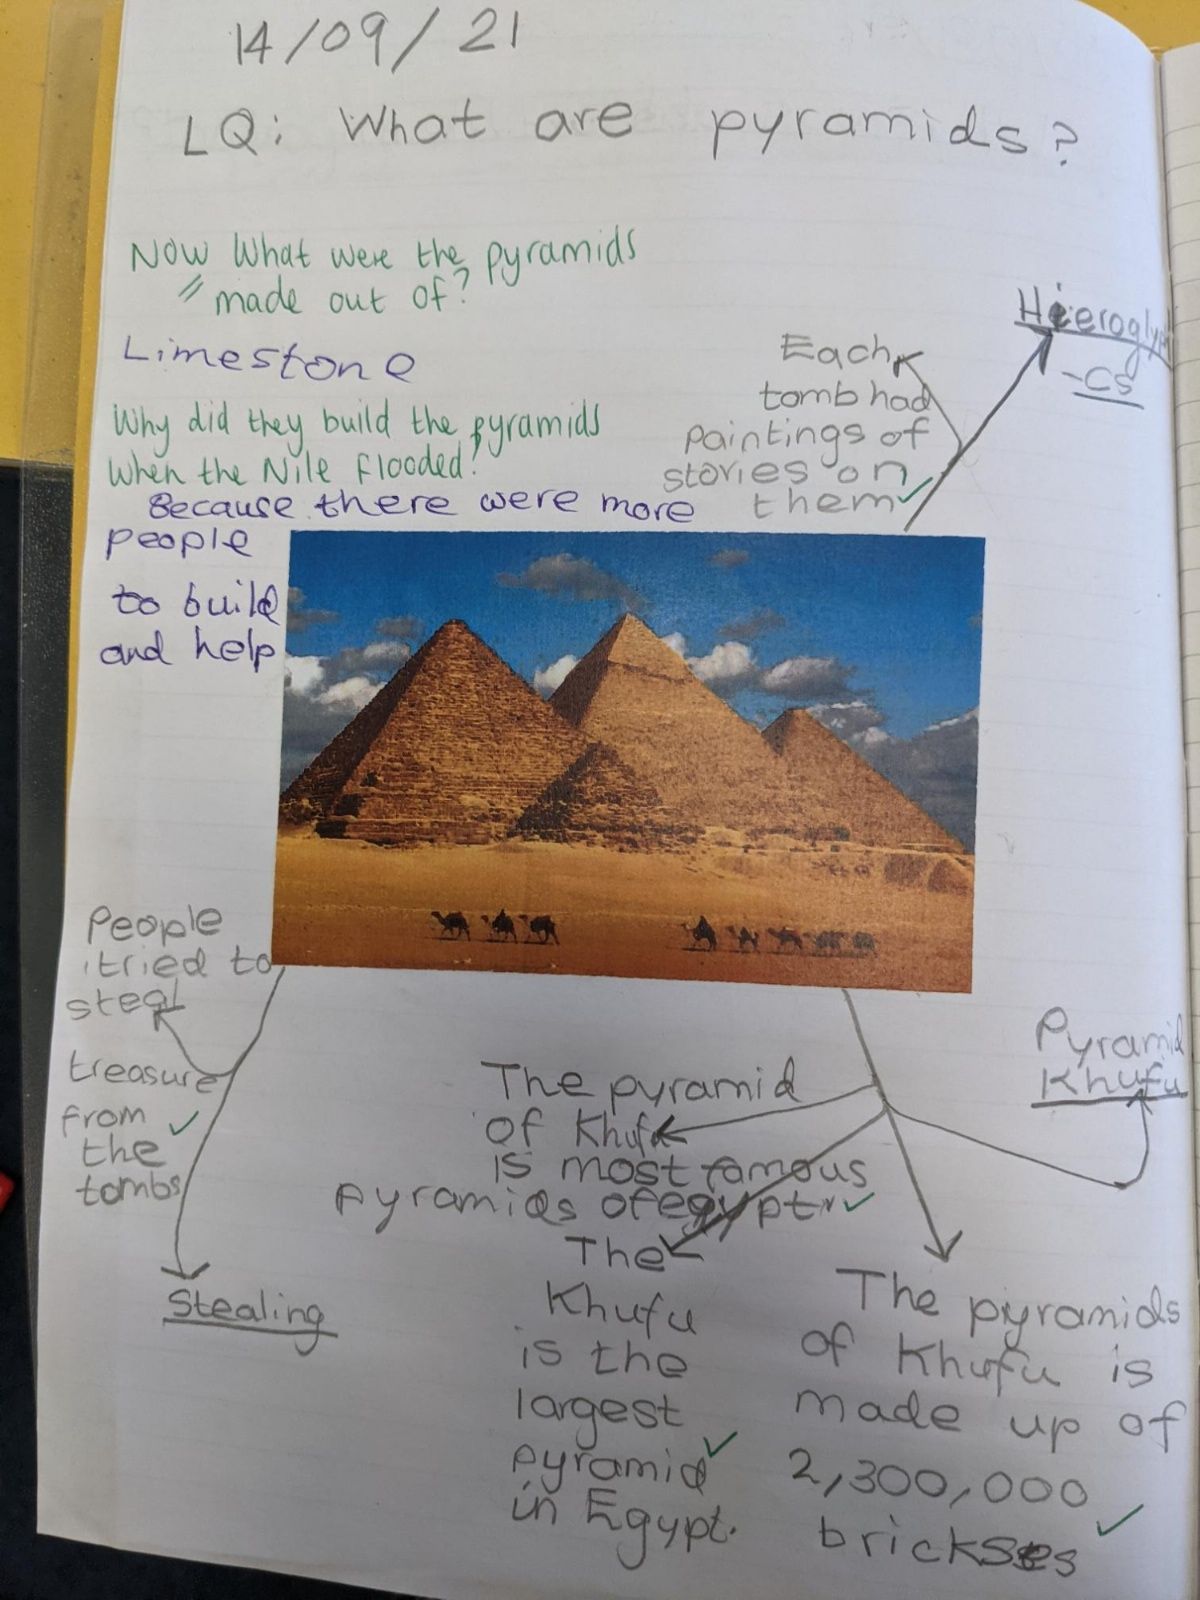 14/09/21
LQ: What are pyramids?
Now What were the pyramids
made out of?
Limestone
Why did they build the pyramids
when the Nile flooded?
Because there were more
people
to build
and help
Hieroglyph
-cs
Each
tomb had
paintings of
stories on
them
People
tried to
steal
treasure
from
the
tombs
Stealing
The pyramid
of Khufu
is most famous
pyramids of egypt
The
Khufu
is the
largest
pyramid
in Egypt.
Pyramid
Khufu
The pyramids
of Khufu is
made up of
2,300,000
brickses